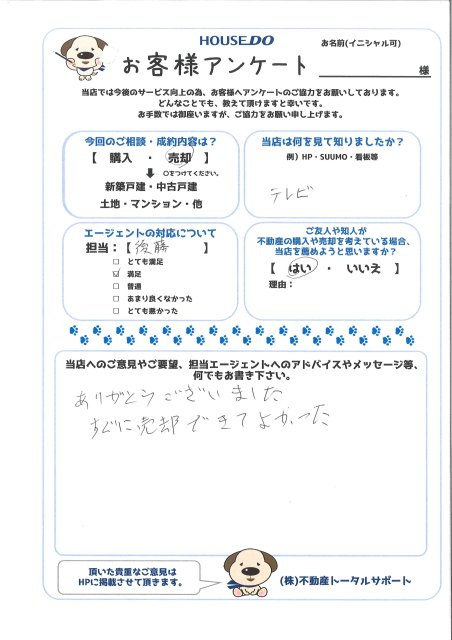 HOUSE DO
お名前(イニシャル可)
お客様アンケート
様
当店では今後のサービス向上の為、お客様へアンケートのご協力をお願いしております。
どんなことでも、教えて頂けますと幸いです。
お手数では御座いますが、ご協力をお願い申し上げます。
今回のご相談・成約内容は?
【 購入 ・ 売却 】
○をつけてください。
新築戸建・中古戸建
土地・マンション・他
当店は何を見て知りましたか?
例)HP・SUUMO・看板等
テレビ
エージェントの対応について
担当:【 後藤 】
□ とても満足
☑ 満足
□ 普通
□ あまり良くなかった
□ とても悪かった
ご友人や知人が
不動産の購入や売却を考えている場合、
当店を薦めようと思いますか?
【 はい ・ いいえ 】
理由:
当店へのご意見やご要望、担当エージェントへのアドバイスやメッセージ等、
何でもお書き下さい。
ありがとうございました
すぐに売却できてよかった
頂いた貴重なご意見は
HPに掲載させて頂きます。
(株)不動産トータルサポート